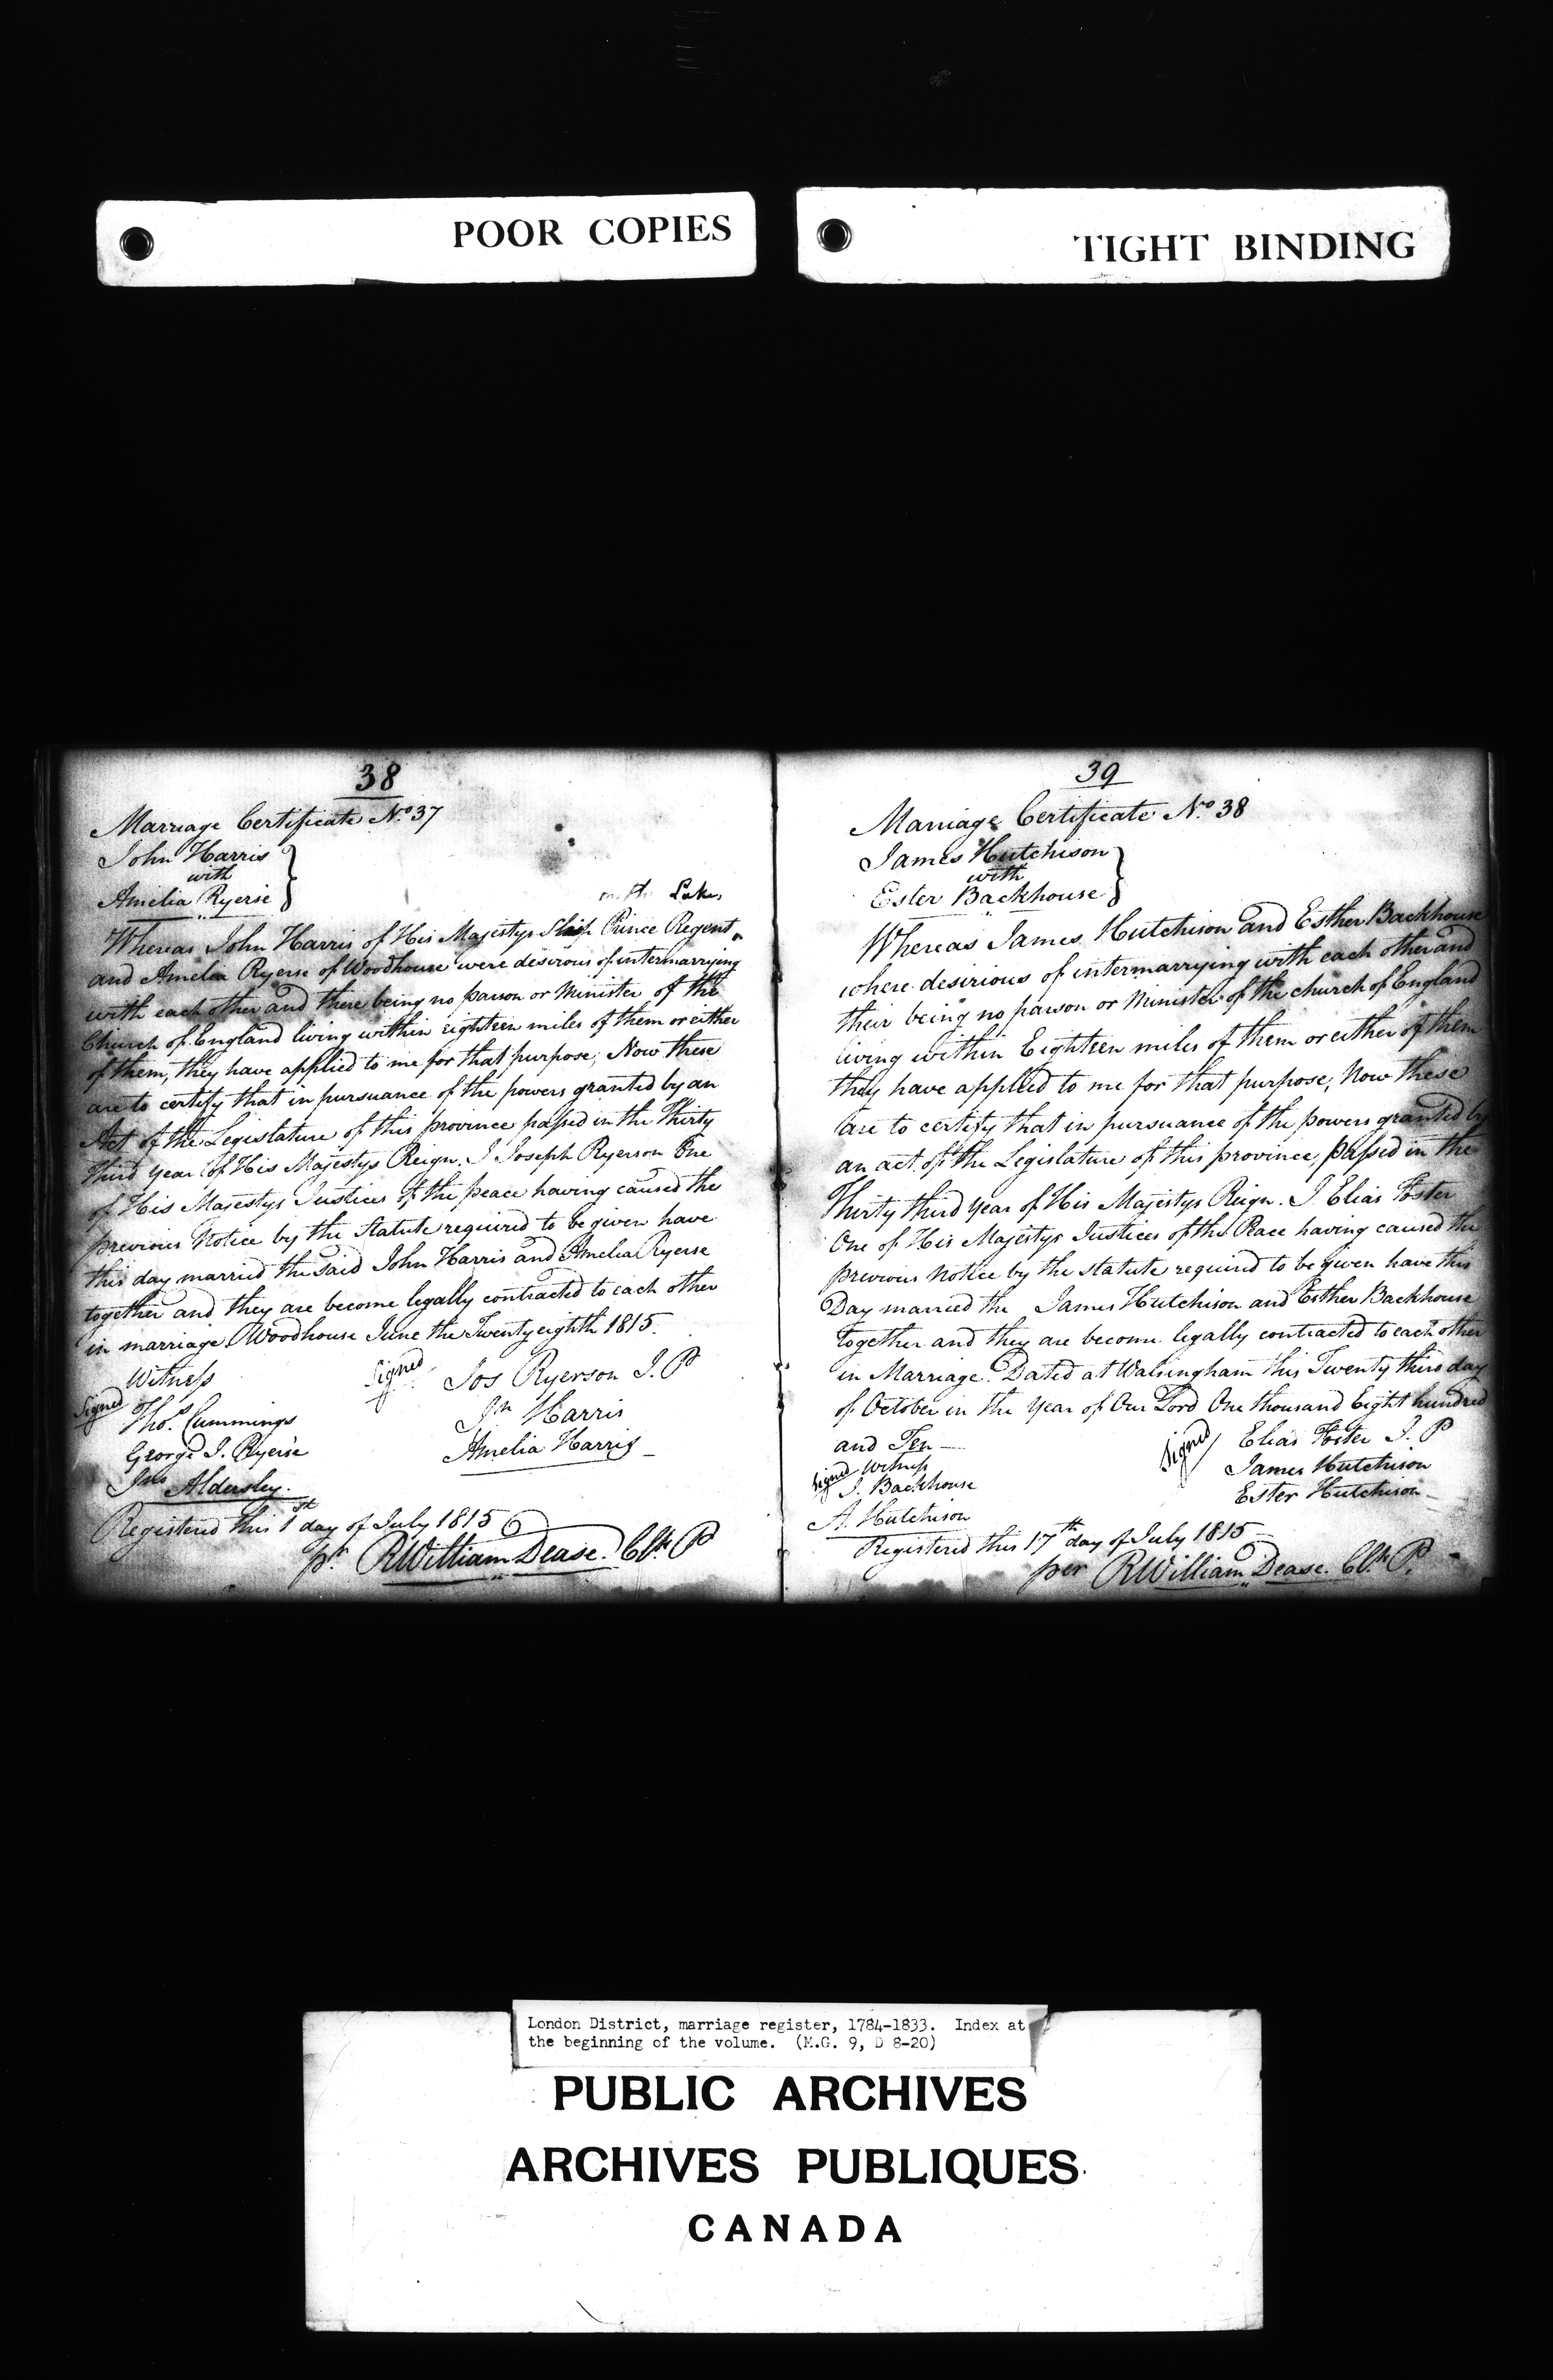 POOR COPIES
TIGHT BINDING
38
Marriage Certificate No. 37
John Harris
with
Amelia Ryerse
Lakes
Whereas John Harris of His Majestys Ship Prince Regent
and Amelia Ryerse of Woodhouse were desirous of intermarrying
with each other and there being no parson or Minister of the
Church of England living within eighteen miles of them or either
of them, they have applied to me for that purpose; Now these
are to certify that in pursuance of the powers granted by an
Act of the Legislature of this province passed in the Thirty
third year of His Majestys Reign. I Joseph Ryerson One
of His Majestys Justices of the peace having caused the
previous Notice by the Statute required to be given have
this day married the said John Harris and Amelia Ryerse
together and they are become legally contracted to each other
in marriage. Woodhouse June the Twenty eighth 1815.
Witness
Signed Jos Ryerson J. P
Signed of
Thos. Cummings
Jn Harris
George J. Ryerse
Amelia Harris
Jno Aldersley.
Registered this 1st day of July 1815
pr. RWilliam Dease. Clk P
39
Marriage Certificate No. 38
James Hutchison
with
Ester Backhouse
Whereas James Hutchison and Esther Backhouse
where desirious of intermarrying with each other and
their being no parson or Minister of the church of England
living within Eighteen miles of them or either of them
they have applied to me for that purpose; Now these
are to certify that in pursuance of the powers granted by
an act of the Legislature of this province, passed in the
Thirty third year of His Majestys Reign. I Elias Foster
One of His Majestys Justices of the Peace having caused the
previous Notice by the statute required to be given have this
Day married the James Hutchison and Esther Backhouse
together and they are become legally contracted to each other
in Marriage. Dated at Walsingham this Twenty third day
of October in the Year of Our Lord One thousand Eight hundred
and Ten
Signed Elias Foster J. P
Signed Witness
James Hutchison
J. Backhouse
Ester Hutchison
A. Hutchison
Registered this 17th day of July 1815
per RWilliam Dease. Clk. P.
London District, marriage register, 1784-1833. Index at
the beginning of the volume. (M.G. 9, D 8-20)
PUBLIC ARCHIVES
ARCHIVES PUBLIQUES
CANADA